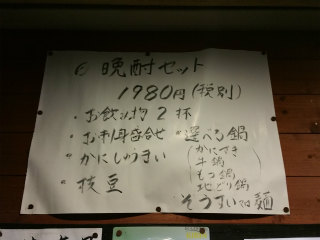 晩酌セット
1980円(税別)
・お飲み物2杯
・お刺身盛合せ
・かにしゅうまい
・枝豆
・選べる鍋
(かにすき
牛鍋
もつ鍋
地どり鍋)
ぞうすいor麺